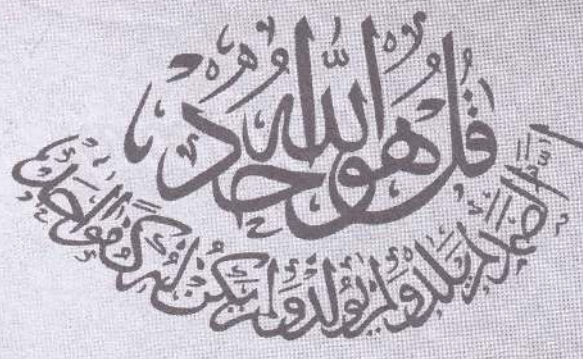 قُلْ هُوَ اللَّهُ أَحَدٌ
اللَّهُ الصَّمَدُ لَمْ يَلِدْ وَلَمْ يُولَدْ وَلَمْ يَكُن لَّهُ كُفُوًا أَحَدٌ